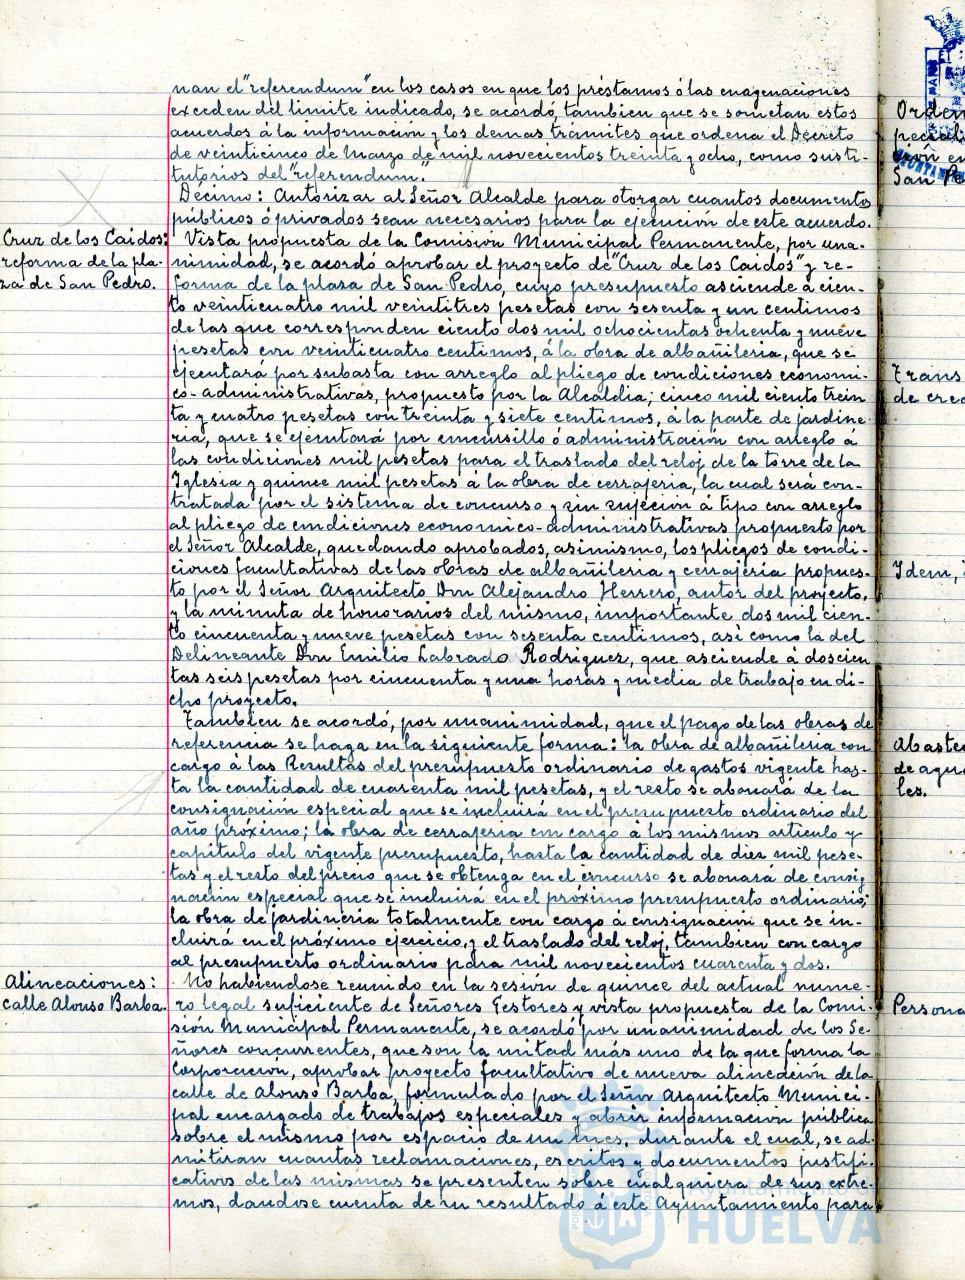 nan el "referendum" en los casos en que los préstamos ó las enagenaciones
exceden del limite indicado, se acordó, tambien que se sometan estos
acuerdos á la información y los demas trámites que ordena el Decreto
de veinticinco de Marzo de mil novecientos treinta y ocho, como susti-
tutorios del "referendum".
Décimo: Autorizar al Señor Alcalde para otorgar cuantos documentos
públicos ó privados sean necesarios para la ejecución de este acuerdo.
Cruz de los Caidos:
reforma de la pla-
za de San Pedro.
Vista propuesta de la Comisión Municipal Permanente, por una-
nimidad, se acordó aprobar el proyecto de "Cruz de los Caidos" y re-
forma de la plaza de San Pedro, cuyo presupuesto asciende á cien-
to veinticuatro mil veintitres pesetas con sesenta y un centimos
de las que corresponden ciento dos mil ochocientas ochenta y nueve
pesetas con veinticuatro centimos, á la obra de albañileria, que se
ejecutará por subasta con arreglo al pliego de condiciones económi-
co-administrativas, propuesto por la Alcaldia; cinco mil ciento trein
ta y cuatro pesetas con treinta y siete centimos, á la parte de jardine-
ria, que se ejecutará por concursillo ó administración con arreglo á
las condiciones mil pesetas para el traslado del reloj de la torre de la
Iglesia y quince mil pesetas á la obra de cerrajeria, la cual será con-
tratada por el sistema de concurso y sin sujeción á tipo con arreglo
al pliego de condiciones economico-administrativas propuesto por
el Señor Alcalde, quedando aprobados, asimismo, los pliegos de condi-
ciones facultativas de las obras de albañileria y cerrajeria propues-
to por el Señor Arquitecto Don Alejandro Herrero, autor del proyecto,
y la minuta de honorarios del mismo, importante dos mil cien-
to cincuenta y nueve pesetas con sesenta centimos, asi como la del
Delineante Don Emilio Labrado Rodriguez, que asciende á doscien
tas seis pesetas por cincuenta y una horas y media de trabajo en di-
cho proyecto.
Tambien se acordó, por unanimidad, que el pago de las obras de
referencia se haga en la siguiente forma: la obra de albañileria con
cargo á las Resultas del presupuesto ordinario de gastos vigente has-
ta la cantidad de cuarenta mil pesetas, y el resto se abonará de la
consignación especial que se incluirá en el presupuesto ordinario del
año próximo; la obra de cerrajeria con cargo á los mismos articulo y
capitulo del vigente presupuesto, hasta la cantidad de diez mil pese-
tas y el resto del precio que se obtenga en el concurso se abonará de consig
nación especial que se incluirá en el próximo presupuesto ordinario;
la obra de jardineria totalmente con cargo á consignación que se in-
cluirá en el próximo ejercicio, y el traslado del reloj, tambien con cargo
al presupuesto ordinario para mil novecientos cuarenta y dos.
Alineaciones:
calle Alonso Barba.
No habiendose reunido en la sesión de quince del actual nume-
ro legal suficiente de Señores Gestores y vista propuesta de la Comi-
sión Municipal Permanente, se acordó por unanimidad de los Se-
ñores concurrentes, que son la mitad más uno de la que forma la
Corporación, aprobar proyecto facultativo de nueva alineación de la
calle de Alonso Barba, formulado por el Señor Arquitecto Munici-
pal encargado de trabajos especiales y abrir información pública
sobre el mismo por espacio de un mes, durante el cual, se ad-
mitiran cuantas reclamaciones, escritos y documentos justifi-
cativos de las mismas se presenten sobre cualquiera de sus extre-
mos, dandose cuenta de su resultado á este Ayuntamiento para
Orden
San Pe
Trans
de cred
Idem,
Abaste
de agu
les.
Persona
Ayuntamiento
HUELVA